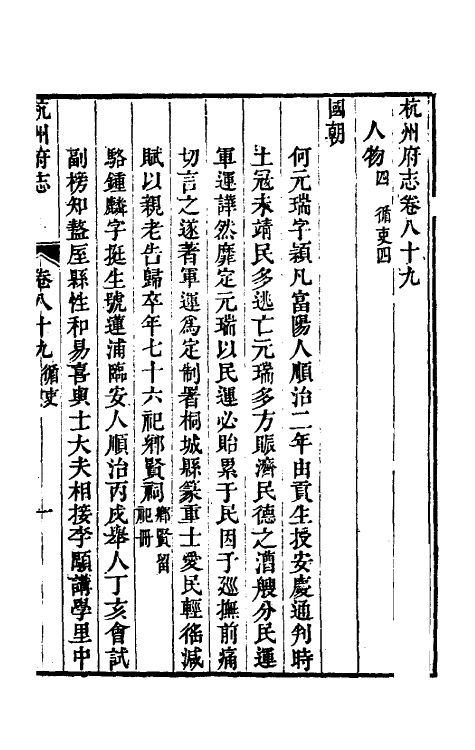 杭州府志卷八十九
人物四 循吏四
國朝
何元瑞字穎凡富陽人順治二年由貢生授安慶通判時
土冦未靖民多逃亡元瑞多方賑濟民德之漕艘分民運
軍運譁然靡定元瑞以民運必貽累于民因子廵撫前痛
切言之遂著軍運爲定制署桐城縣篆重士愛民輕徭減
賦以親老告歸卒年七十六祀鄉賢祠鄉賢留祀冊
駱鍾麟字挺生號蓮浦臨安人順治丙戌舉人丁亥會試
副榜知盩厔縣性和易喜與士大夫相接李顒講學里中
杭州府志
卷八十九 循吏
一